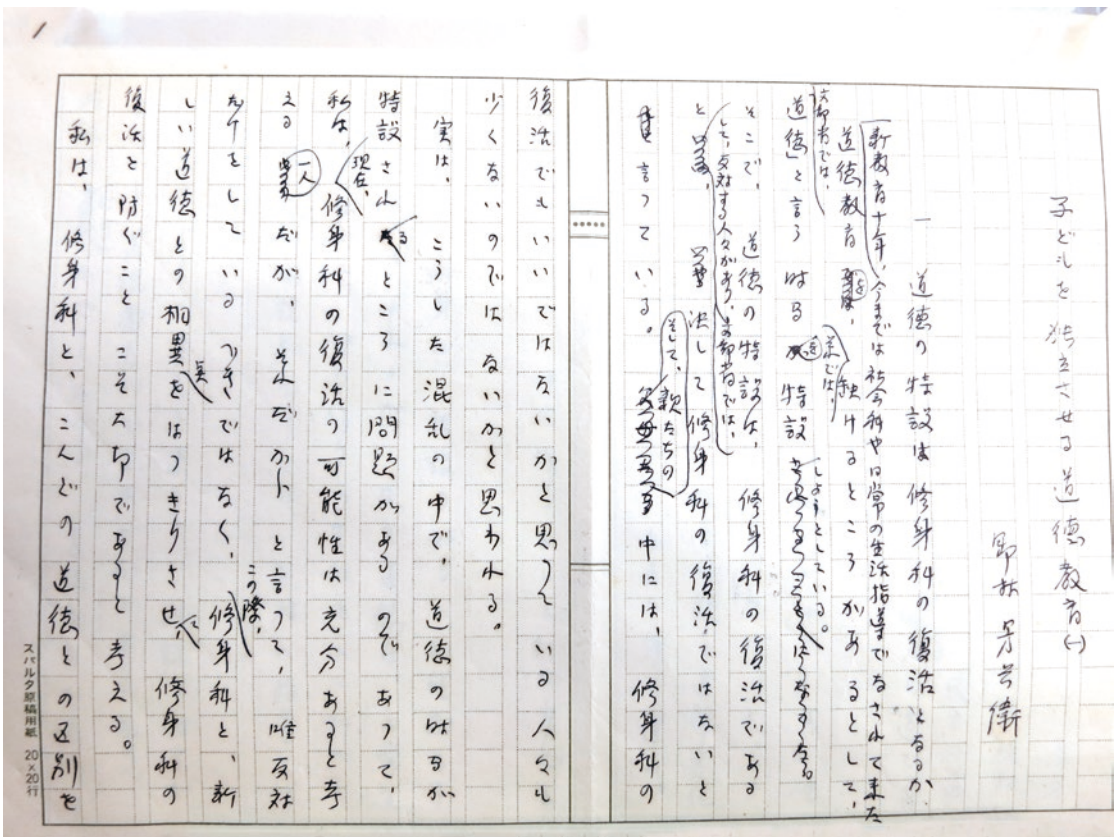 1
子どもを独立させる道徳教育(一)
野村芳兵衛
一 道徳の特設は修身科の復活となるか
新教育十年、今までは社会科や日常の生活指導でなされて来た
道徳教育を、それでは、独けるところがあるとして、
文部省では、
道徳」と言う時間を特設しようとしている。
そこで、道徳の特設は、修身科の復活である
として、反対する人々があり、文部省では、
と 決して修身科の復活ではないと
言っている。そして、親たちの中には、修身科の
復活でもいいではないかと思っている人々も
少くないのではないかと思われる。
実は、こうした混乱の中で、道徳の時間が
特設されるところに問題があるのであって、
私は、現在、修身科の復活の可能性は充分あると考
える一人だが、それだからと言って、唯反対
だけをしているべきではなく、この際、修身科と、新
しい道徳との相異をはっきりさせて、修身科の
復活を防ぐことこそ大切であると考える。
私は、修身科と、こんどの道徳との区別を
スバルタ原稿用紙 20×20行